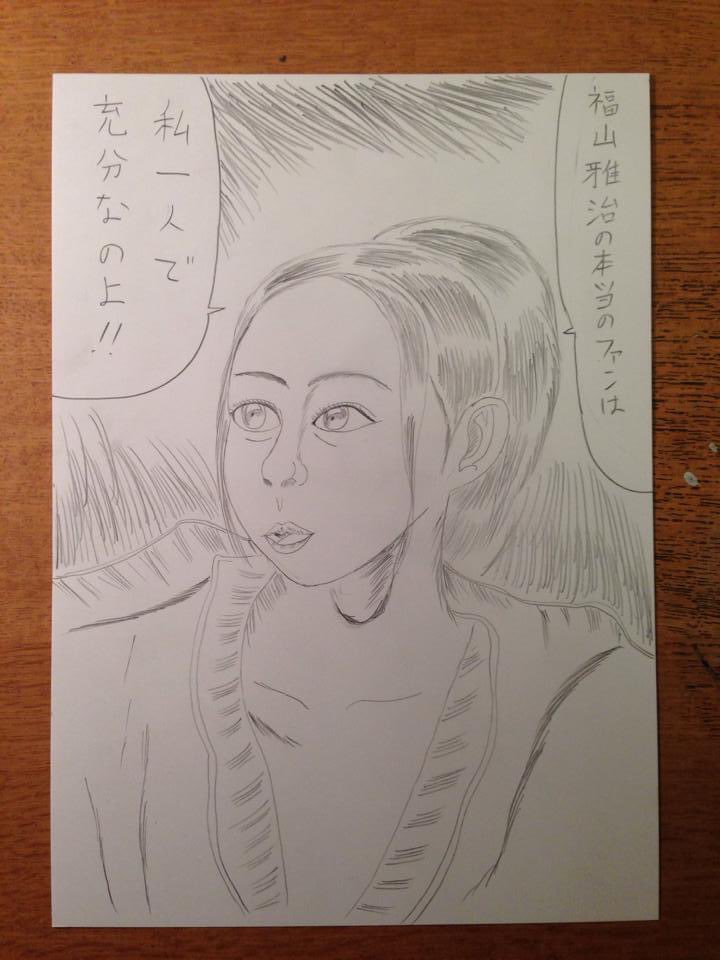 福山雅治の本当のファンは
私一人で
充分なのよ!!